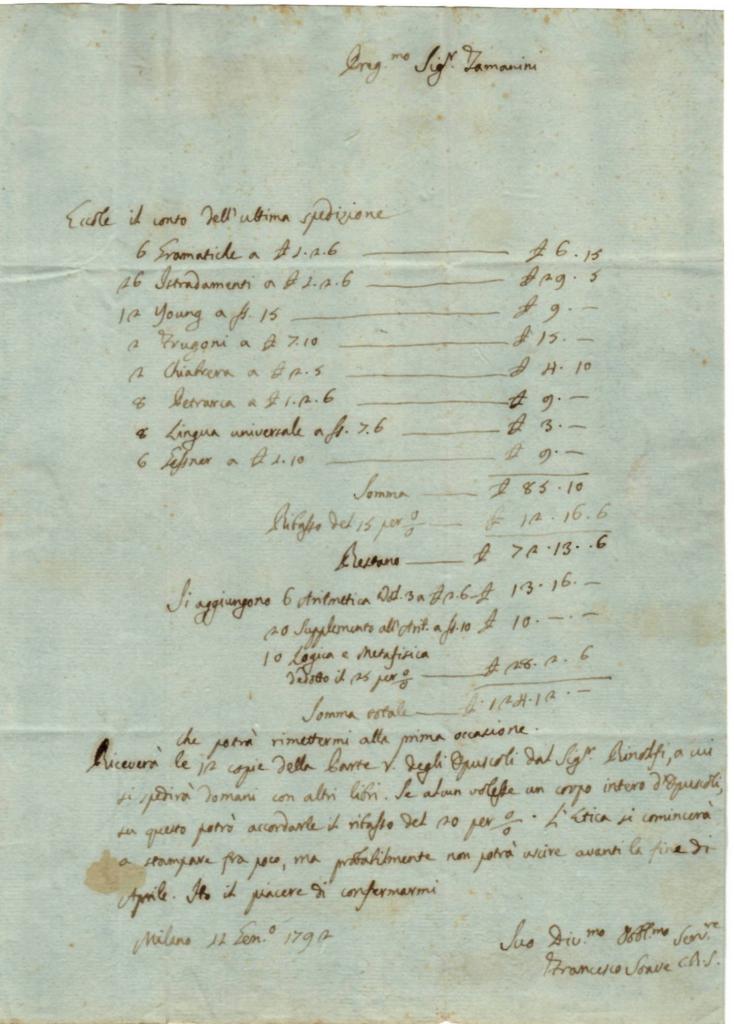 Preg.mo Sigr. Tamanini
Eccole il conto dell'ultima spedizione
6 Gramatiche a ₤ 1.2.6 ——— ₤ 6.15
26 Istradamenti a ₤ 1.2.6 ——— ₤ 29.5
12 Young a ſſ. 15 ——— ₤ 9.—
2 Frugoni a ₤ 7.10 ——— ₤ 15.—
2 Chiabrera a ₤ 2.5 ——— ₤ 4.10
8 Petrarca a ₤ 1.2.6 ——— ₤ 9.—
8 Lingua universale a ſſ. 7.6 ——— ₤ 3.—
6 Gessner a ₤ 1.10 ——— ₤ 9.—
Somma ——— ₤ 85.10
Ribasso del 15 per % — ₤ 12.16.6
Restano ——— ₤ 72.13.6
Si aggiungono 6 Aritmetica Vol. 3 a ₤ 2.6 — ₤ 13.16.—
20 Supplemento all'Arit. a ſſ. 10 ₤ 10.—.—
10 Logica e Metafisica
dedotto il 25 per % —— ₤ 28.2.6
Somma totale —— ₤ 124.12.—
che potrà rimettermi alla prima occasione.
Riceverà le 12 copie della Parte V. degli Opuscoli dal Sigr. Rinolfi, a cui
si spedirà domani con altri libri. Se alcun volesse un corpo intero d'Opuscoli,
su questo potrò accordarle il ribasso del 20 per %. L'Etica si comincerà
a stampare fra poco, ma probabilmente non potrà uscire avanti la fine di
Aprile. Ho il piacere di confermarmi
Milano 11 Gen.o 1792
Suo Div.mo Obbl.mo Serv.re
Francesco Soave C.R.S.